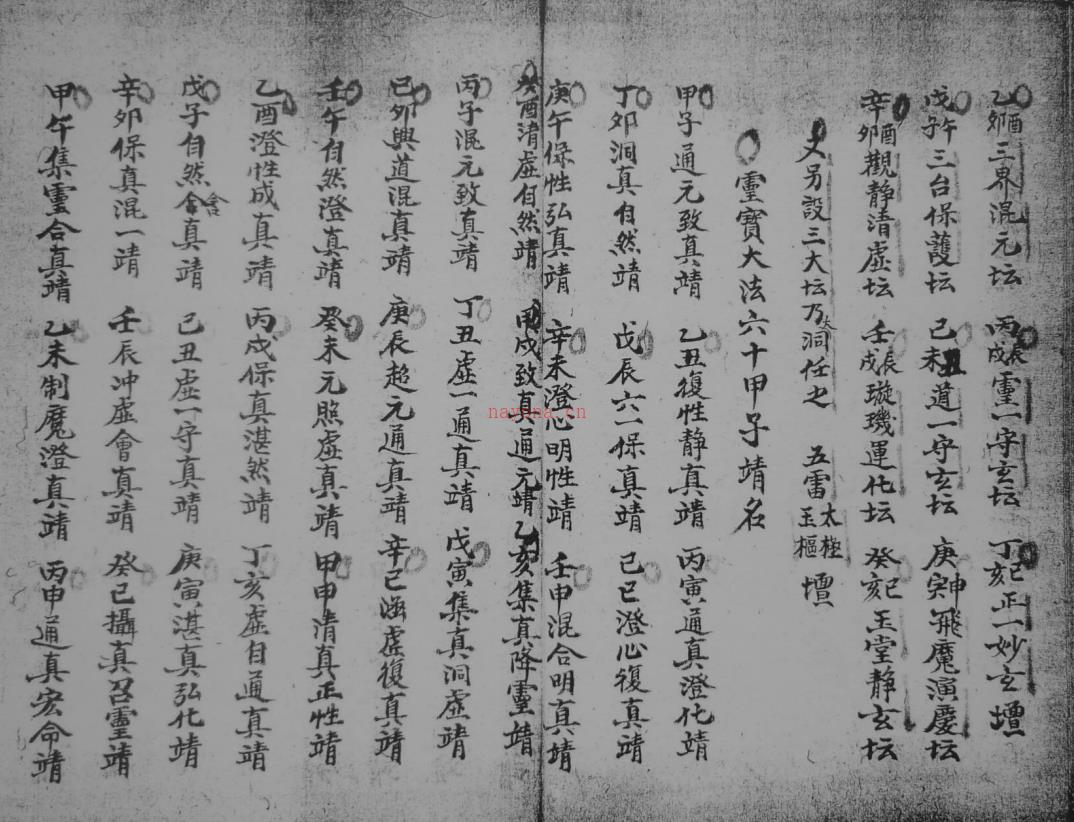 乙卯酉三界混元坛 丙戌辰靈一守玄坛 丁亥巳正一妙玄壇
戊子午三台保護坛 己未丑道一守玄坛 庚寅申飛魔演慶坛
辛卯酉觀静清虛坛 壬戌辰璇璣運化坛 癸亥巳玉堂静玄坛
又另設三大坛乃洞任之 五雷 太極 玉樞 壇
靈寶大法六十甲子靖名
甲子通元致真靖 乙丑復性靜真靖 丙寅通真澄化靖
丁卯洞真自然靖 戊辰六一保真靖 己巳澄心復真靖
庚午保性弘真靖 辛未澄心明性靖 壬申混合明真靖
癸酉清虛自然靖 甲戌致真通元靖 乙亥集真降靈靖
丙子混元致真靖 丁丑虛一通真靖 戊寅集真洞虛靖
己卯與道混真靖 庚辰超元通真靖 辛巳涵虛復真靖
壬午自然澄真靖 癸未元照虛真靖 甲申清真正性靖
乙酉澄性成真靖 丙戌保真湛然靖 丁亥虛白通真靖
戊子自然含真靖 己丑虛一守真靖 庚寅湛真弘化靖
辛卯保真混一靖 壬辰冲虛會真靖 癸巳攝真召靈靖
甲午集靈合真靖 乙未制魔澄真靖 丙申通真宏命靖
nayona.cn